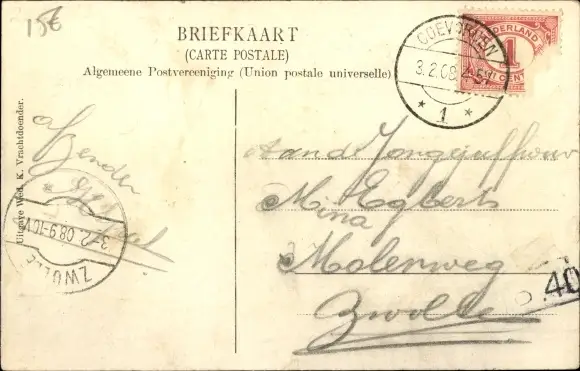 15€
BRIEFKAART
(CARTE POSTALE)
Algemeene Postvereeniging (Union postale universelle)
COEVORDEN
3.2.08.4-5
* 1 *
NEDERLAND
1
CENT
Uitgave Wed. K. Vrachtdoender.
Afzender
ZWOLLE
3-2.08.9-10V
Aan de Jongejufvrouw
Mina Egberts
Molenweg
Zwolle
40